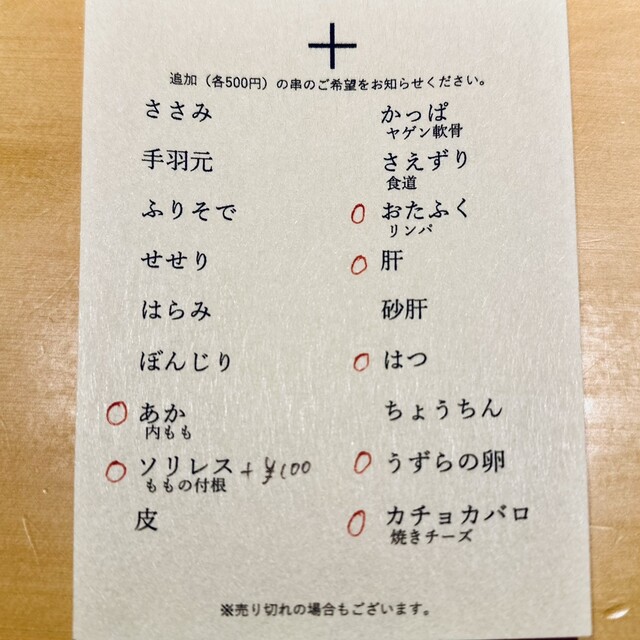 追加（各500円）の串のご希望をお知らせください。
ささみ
手羽元
ふりそで
せせり
はらみ
ぼんじり
あか
内もも
ソリレス + ¥100
ももの付根
皮
かっぱ
ヤゲン軟骨
さえずり
食道
おたふく
リンパ
肝
砂肝
はつ
ちょうちん
うずらの卵
カチョカバロ
焼きチーズ
※売り切れの場合もございます。